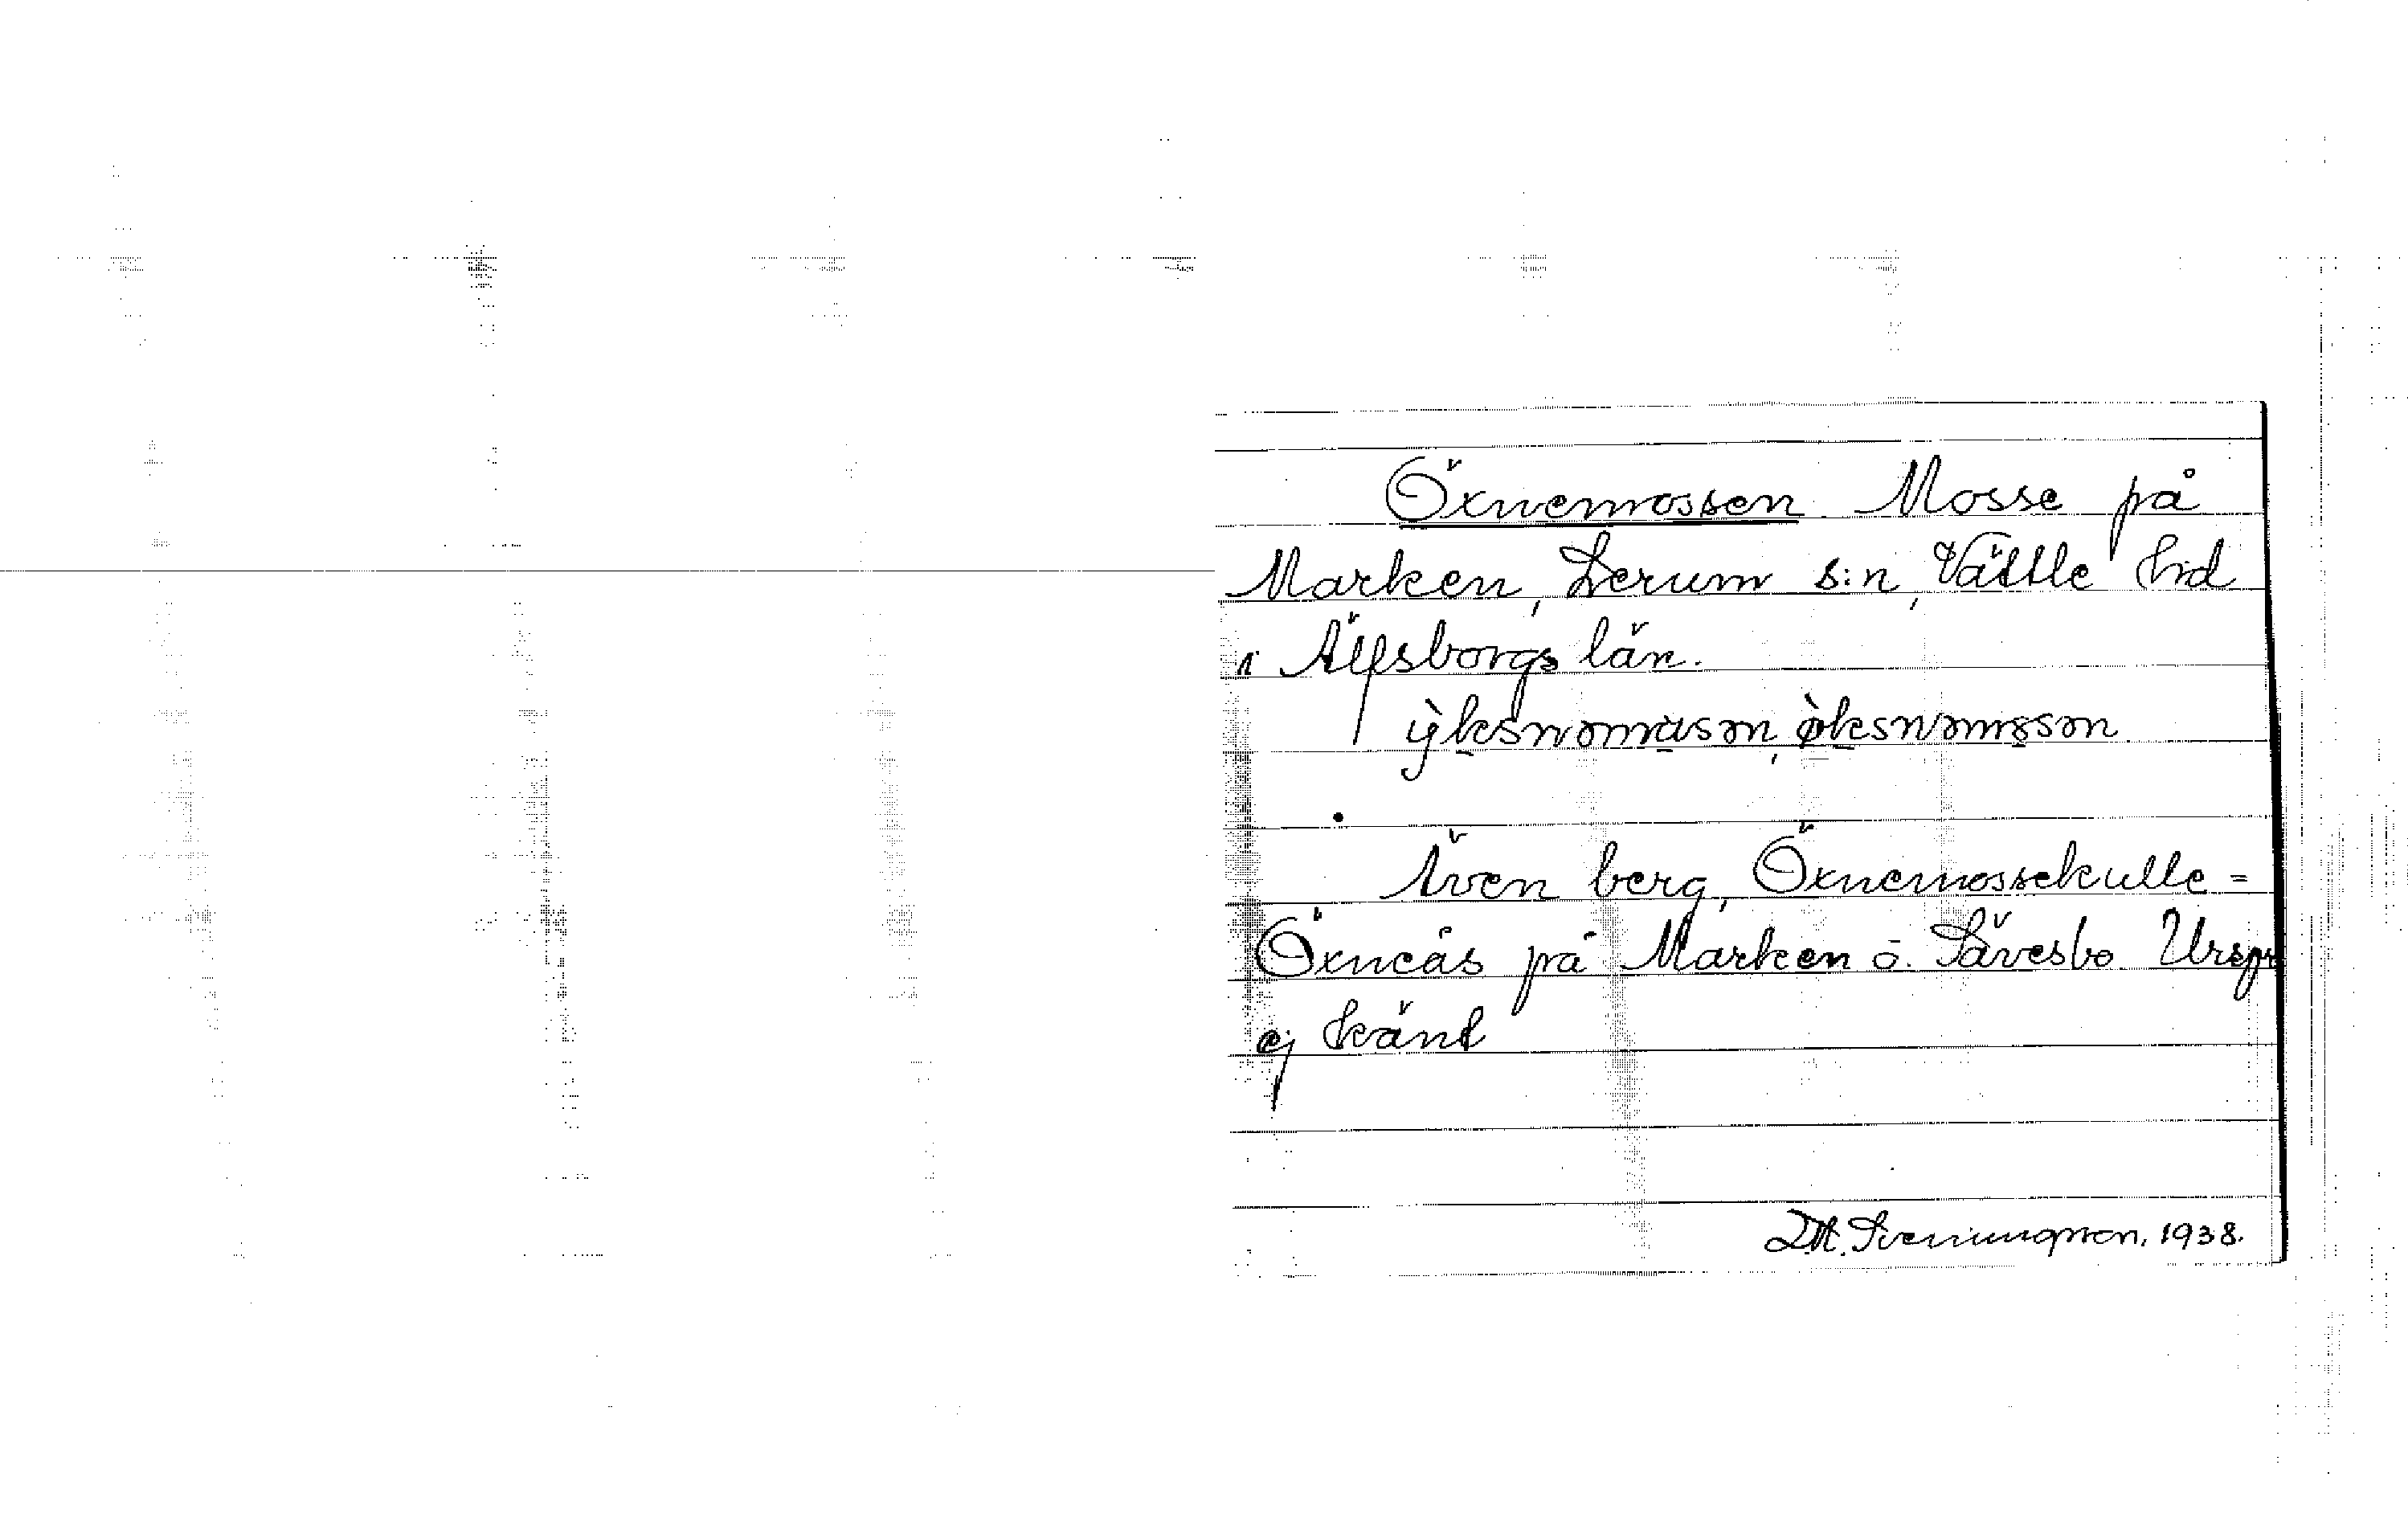 Öxnemossen. Mosse på
Marken, Lerum s:n, Vättle hd
i Älfsborgs län.
ỳksnəmasən, øksnəmɷsən
Även berg, Öxnemossekulle =
Öxneås på Marken o. Sävesbo Urspr
ej känt
Sveningsson, 1938.